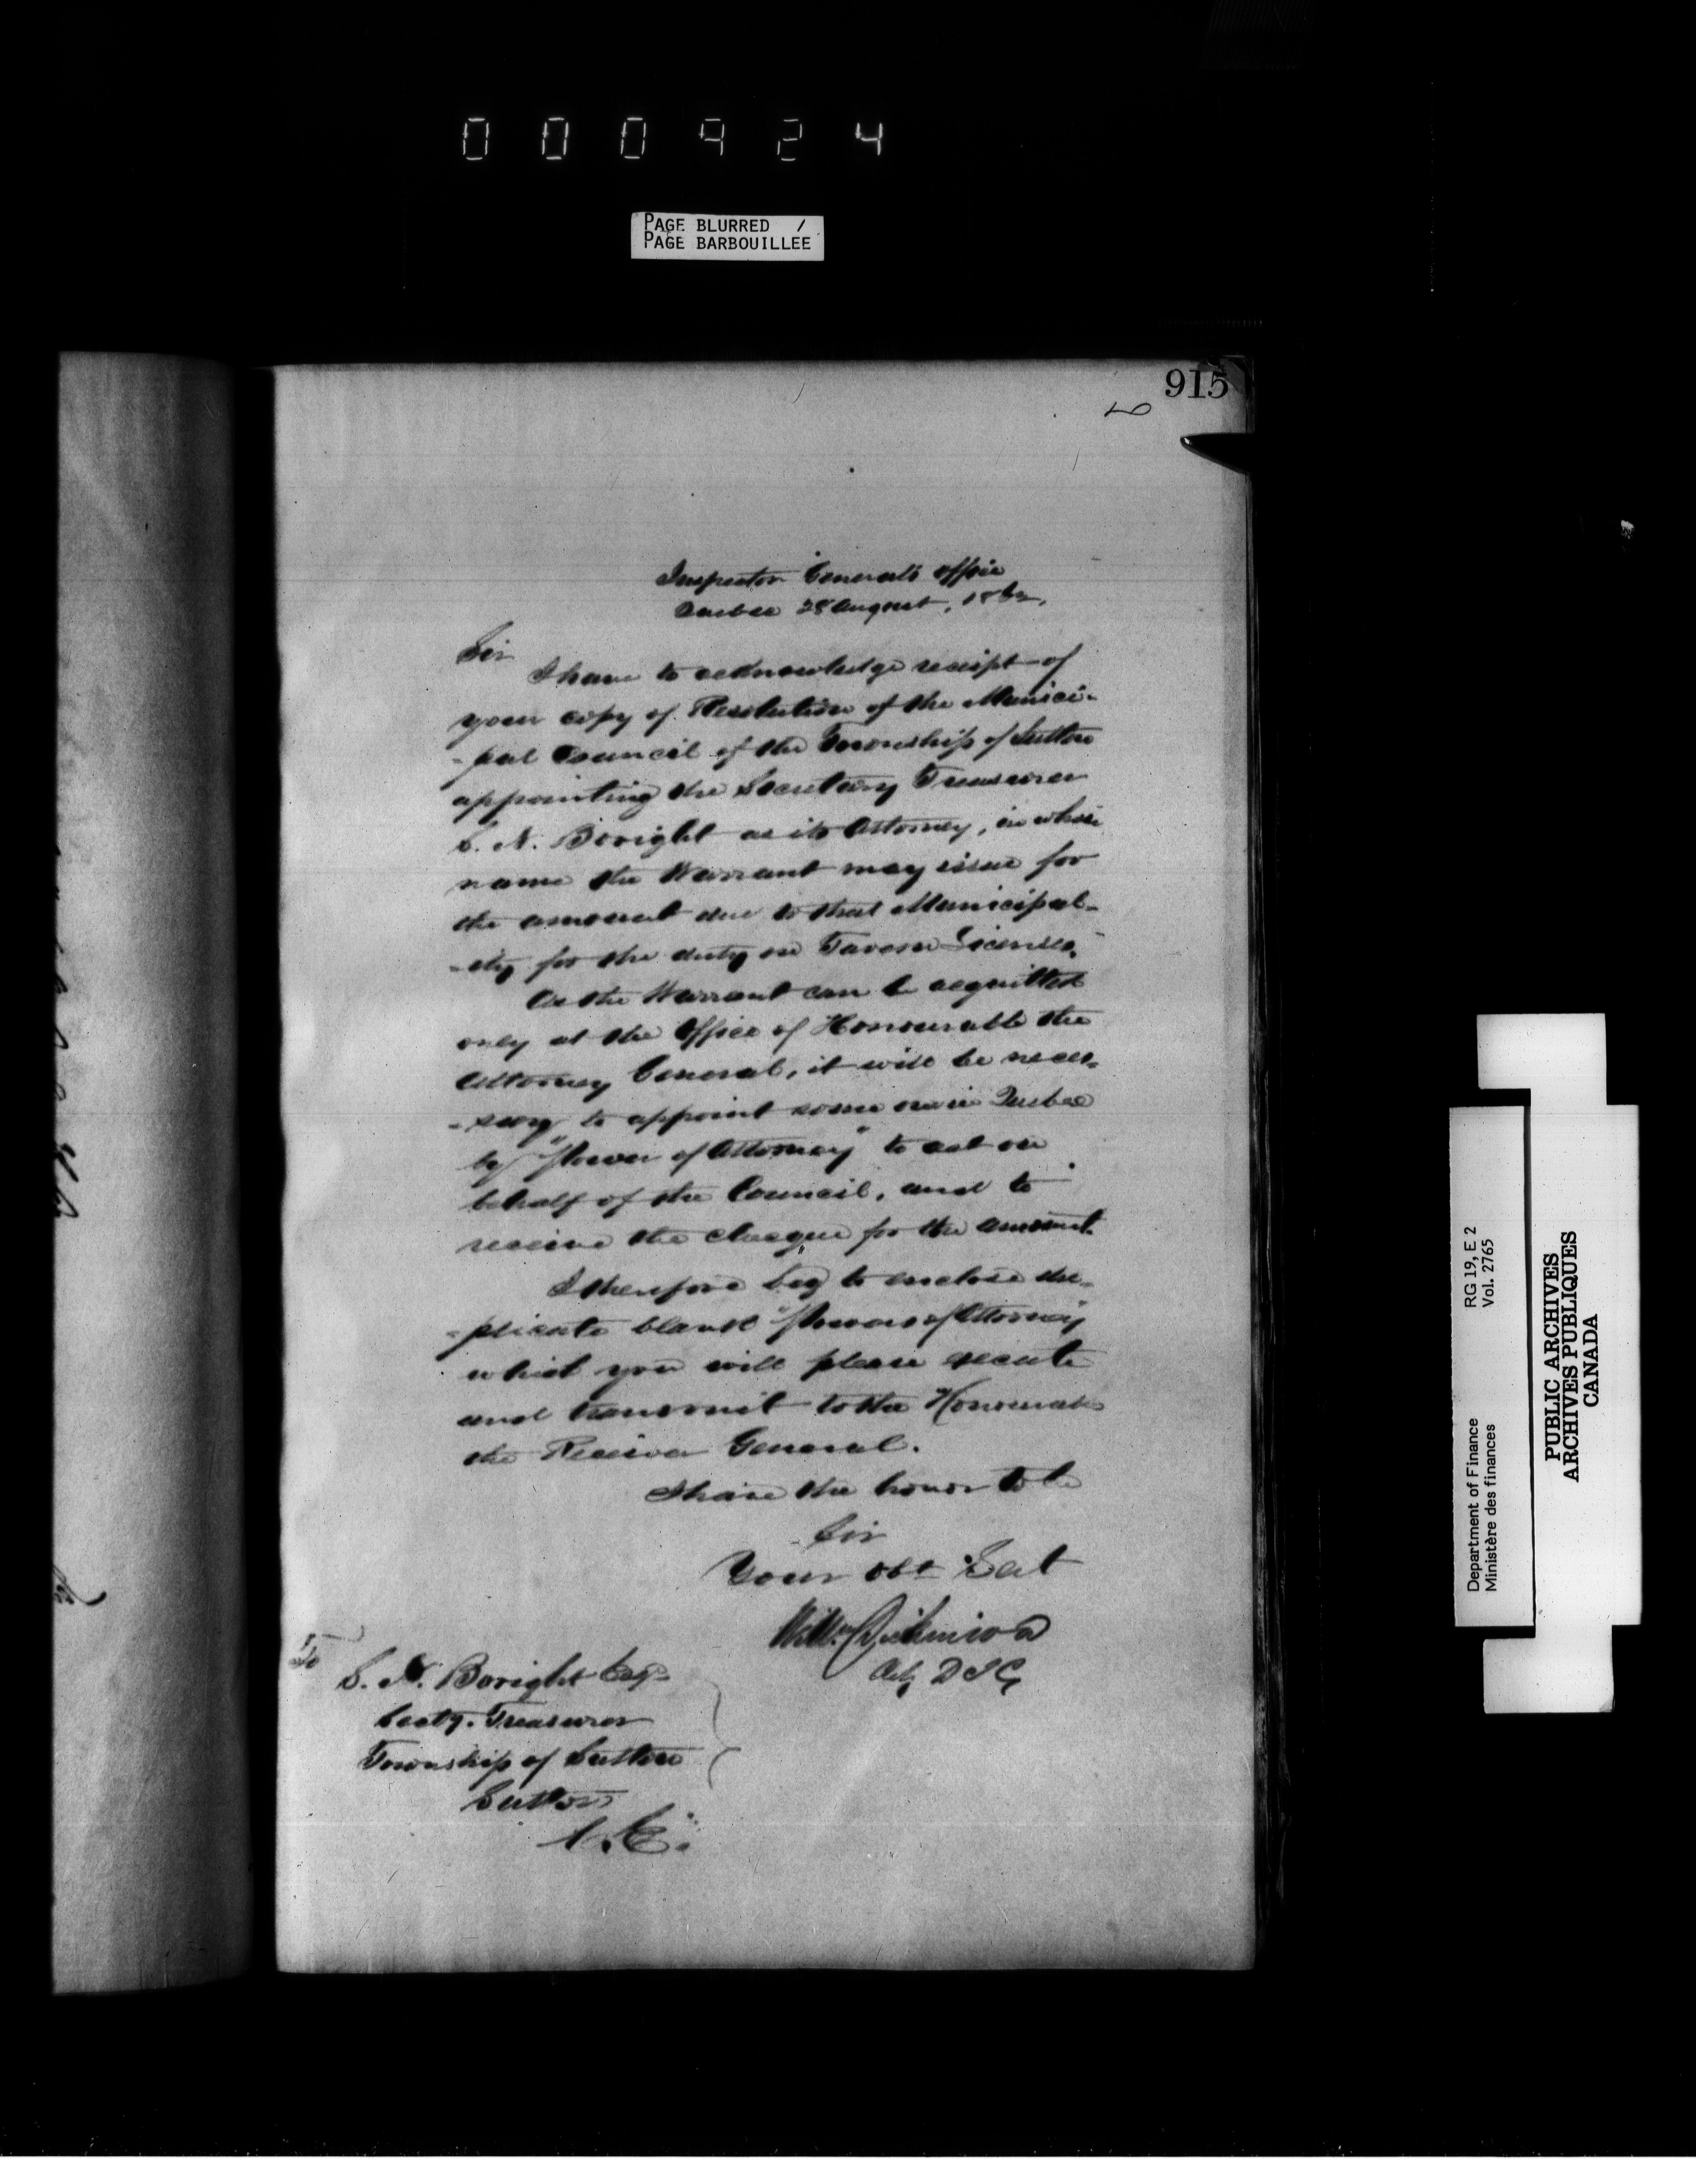 000924
PAGE BLURRED /
PAGE BARBOUILLEE
915
Inspector Generals Office
Quebec 28 August, 1862,
Sir
I have to acknowledge receipt of
your copy of Resolution of the Munici-
-pal Council of the Township of Sutton
appointing the Secretary Treasurer
S. N. Boright as its Attorney, in whose
name the Warrant may issue for
the amount due to that Municipal-
-ity for the duty on Tavern Licenses.
As the Warrant can be acquitted
only at the Office of Honourable the
Attorney General, it will be neces-
-sary to appoint some one in Quebec
by "Power of Attorney" to act on
behalf of the Council, and to
receive the cheque for the amount.
I therefore beg to enclose du-
-plicate blank "Powers of Attorney"
which you will please execute
and transmit to the Honourable
the Receiver General.
I have the honor to be
Sir
Your Obt Svt
Willm Dickinson
Actg D I G
To
S. N. Boright Esq
Secty. Treasurer
Township of Sutton
Sutton
C.E.
Department of Finance RG 19, E 2
Ministère des finances Vol. 2765
PUBLIC ARCHIVES
ARCHIVES PUBLIQUES
CANADA